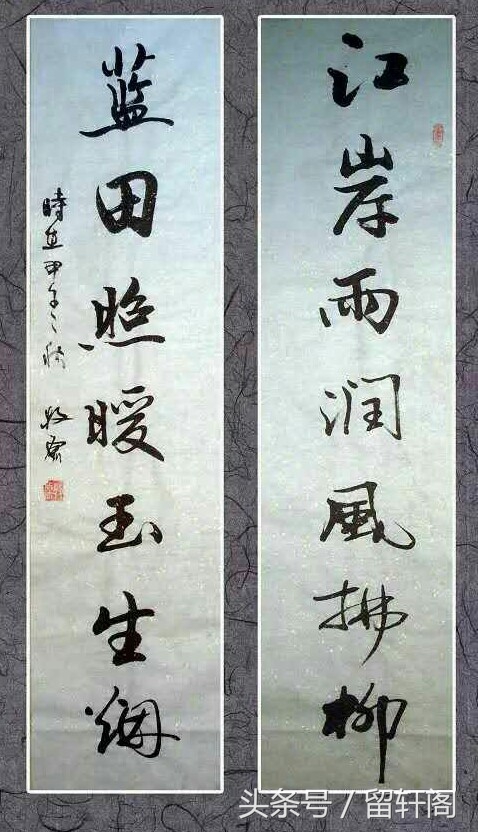 江岸雨润風拂柳
蓝田照暖玉生烟
時在甲午之秋
头条号／留轩阁